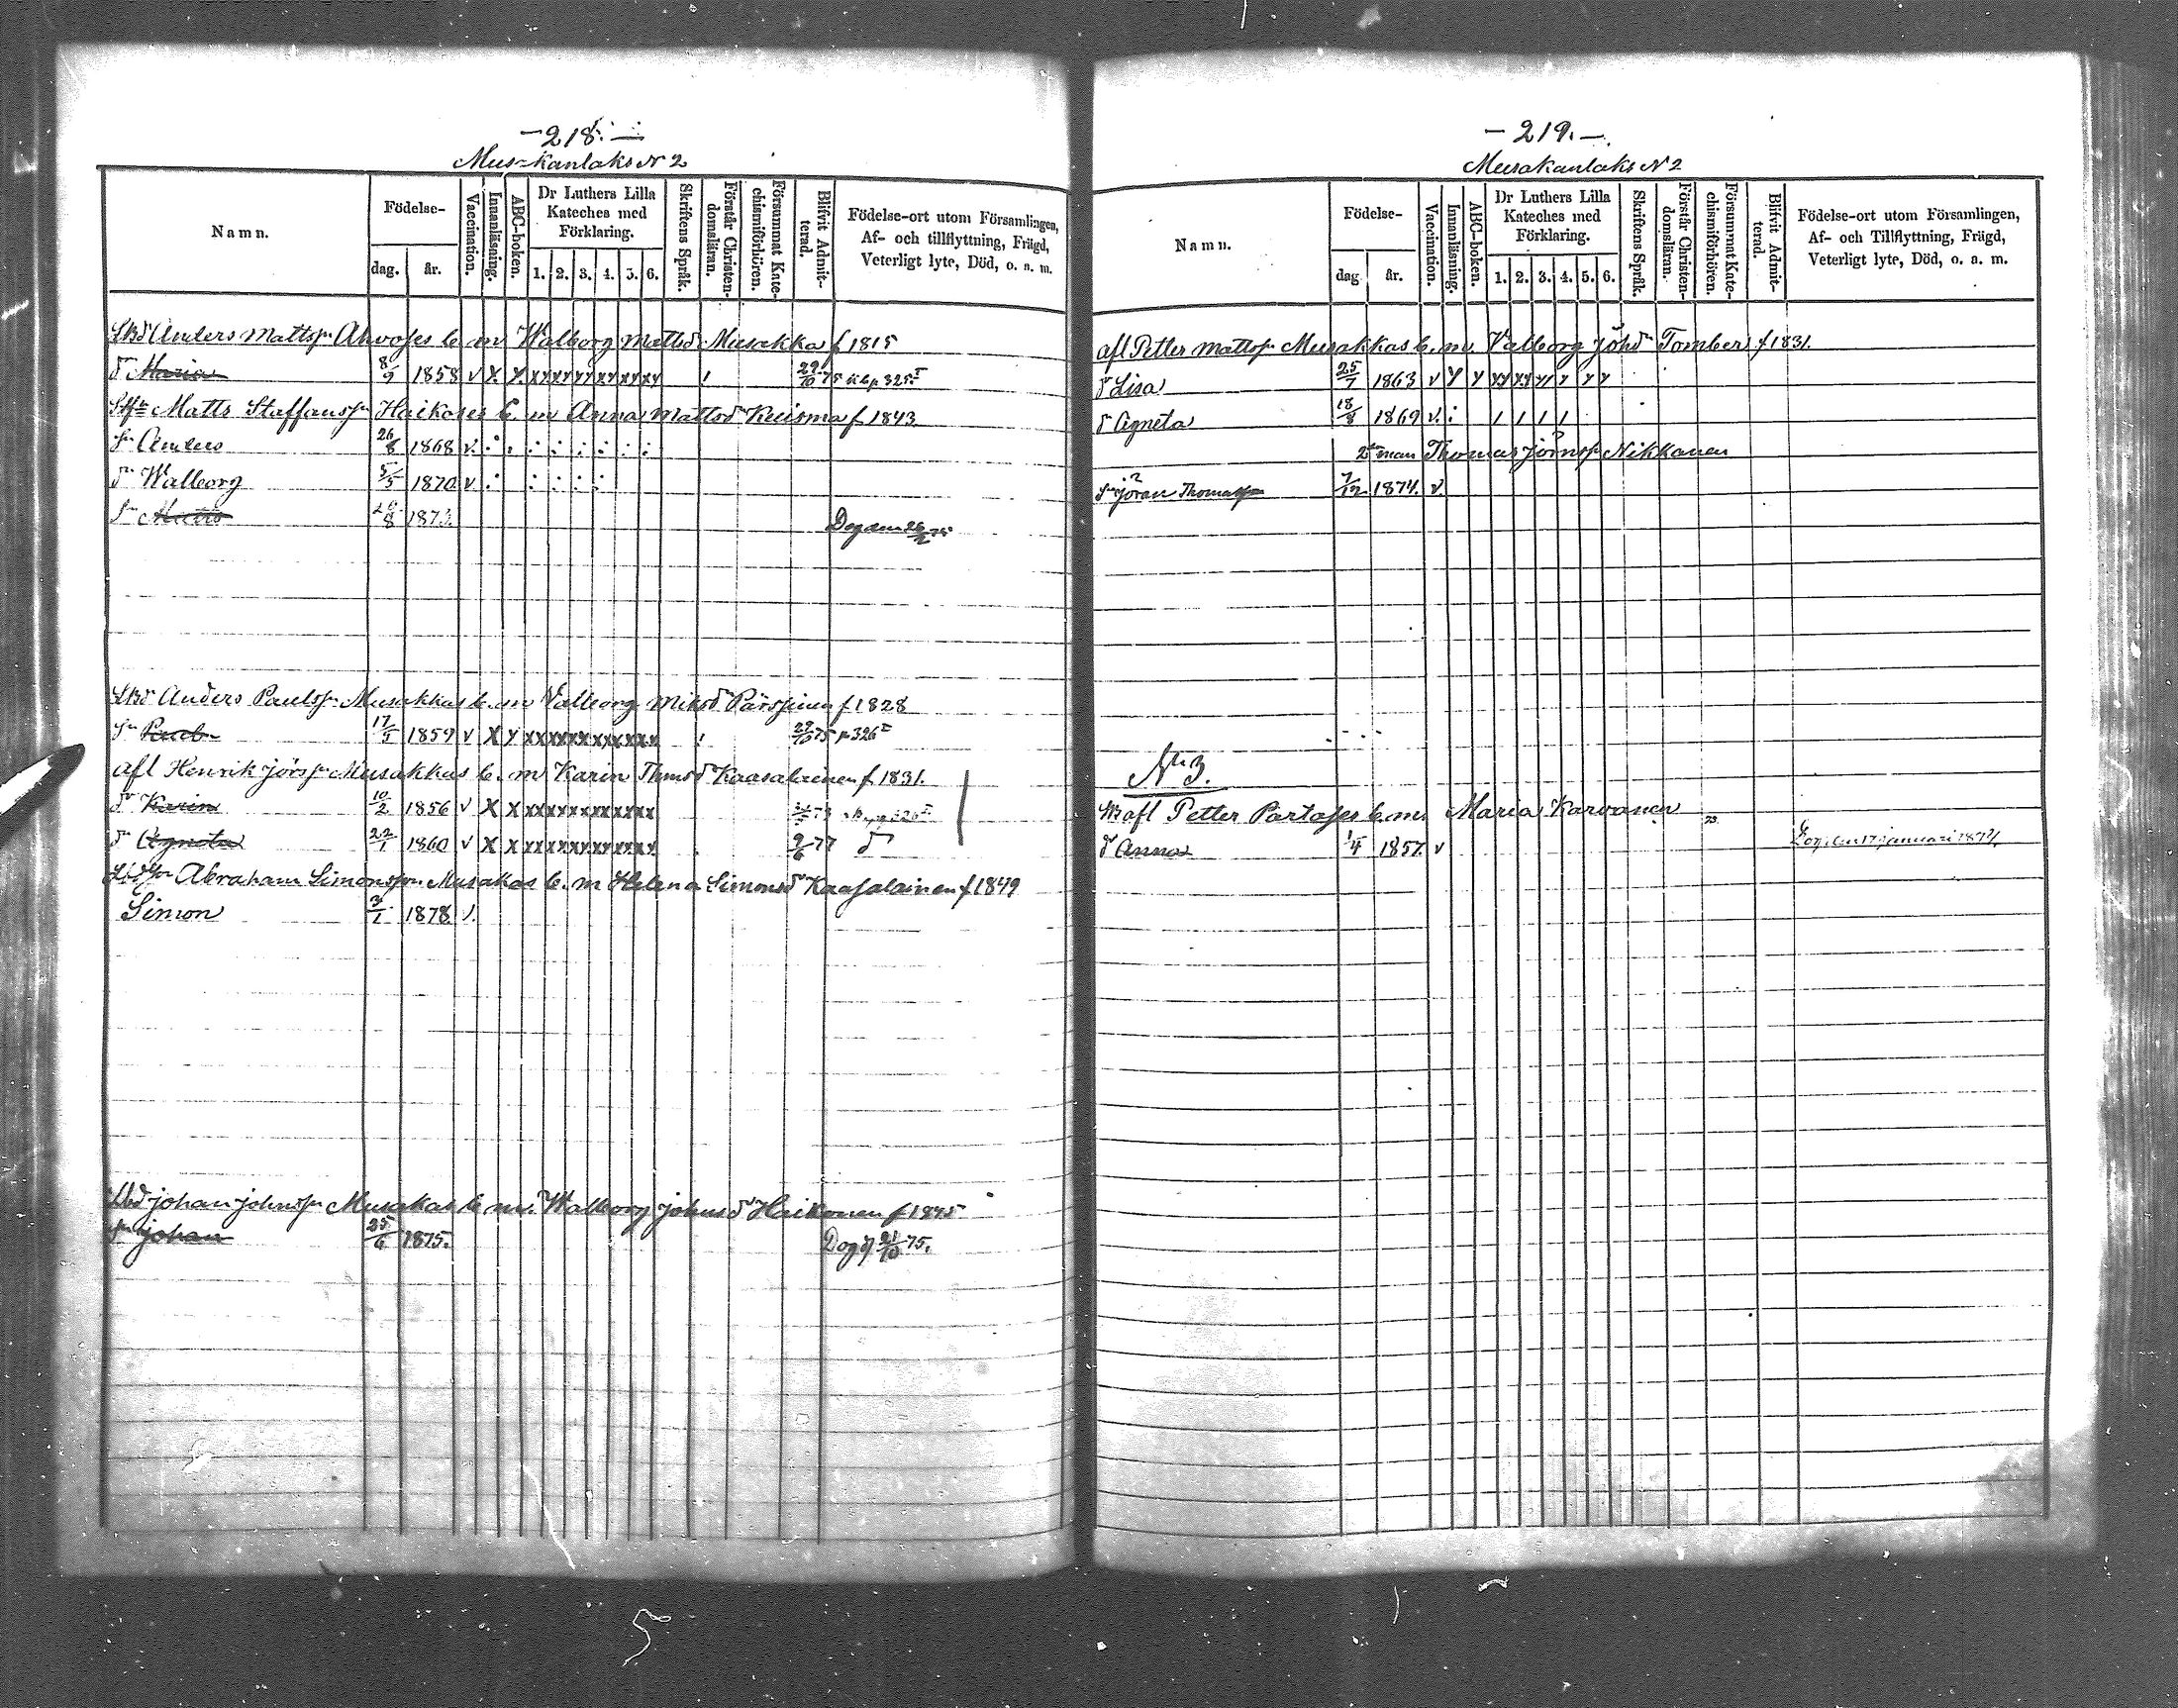 - 218. -
Musakanlaks N 2
Namn.
Födelse-
dag. år.
Vaccination.
Innanläsning.
ABC-boken.
Dr Luthers Lilla Kateches med Förklaring.
1. 2. 3. 4. 5. 6.
Skriftens Språk.
Förstår Christen-domsläran.
Försummat Kate-chismiförhören.
Blifvit Admit-terad.
Födelse-ort utom Församlingen,
Af- och tillflyttning, Frägd,
Veterligt lyte, Död, o. a. m.
Anders Mattss Ahvoses e. m Walborg Mattsd Musakka f 1815
d Maria 8/9 1858 v X y xy xy xy xy xy xy 29/10 75 p 325 I
Matts Staffanss Haikoses e. m Anna Mattsd Kuisma f 1843
sn Anders 26/8 1868 v.
dr Walborg 5/5 1870 v
sn Matts 1873. Dog den 75
Anders Paulss Musakkas e. m Valborg Miksd Pärssinen f 1828
sn Paul 17/5 1859 v X y xx 29/10 75 p 326 I
afl Henrik Jörss Musakkas e. m Karin Thmsd Kaasalainen f. 1831.
dr Karin 10/2 1856 v X X xx
dr Agneta 22/1 1860 v X X xx 9/6 77
Abraham Simonss Musakas e. m Helena Simonsd Kaasalainen f 1849
Simon 3/1 1878 v.
Johan Johnss Musakas e. m. Walborg Johnsd Haikonen f 1845
sn Johan 25/6 1875. Dog 21/10 75.
- 219. -
Musakanlaks N 2
Namn.
Födelse-
dag år.
Vaccination.
Innanläsning.
ABC-boken.
Dr Luthers Lilla Kateches med Förklaring.
1. 2. 3. 4. 5. 6.
Skriftens Språk.
Förstår Christen-domsläran.
Försummat Kate-chismiförhören.
Blifvit Admit-terad.
Födelse-ort utom Församlingen,
Af- och Tillflyttning, Frägd,
Veterligt lyte, Död, o. a. m.
afl Petter Mattss Musakkas e. m. Valborg Johd Tomber f 1831.
d Lisa 25/7 1863 v y y
d Agneta 18/8 1869 v.
2 man Thomas Jörnss Nikkanen
sn Jöran Thomass 7/12 1874. v.
N 3.
afl Petter Partases e. m. Maria Karvanen
d Anna 1/4 1857. v 73. Dog den 17 januari 1874